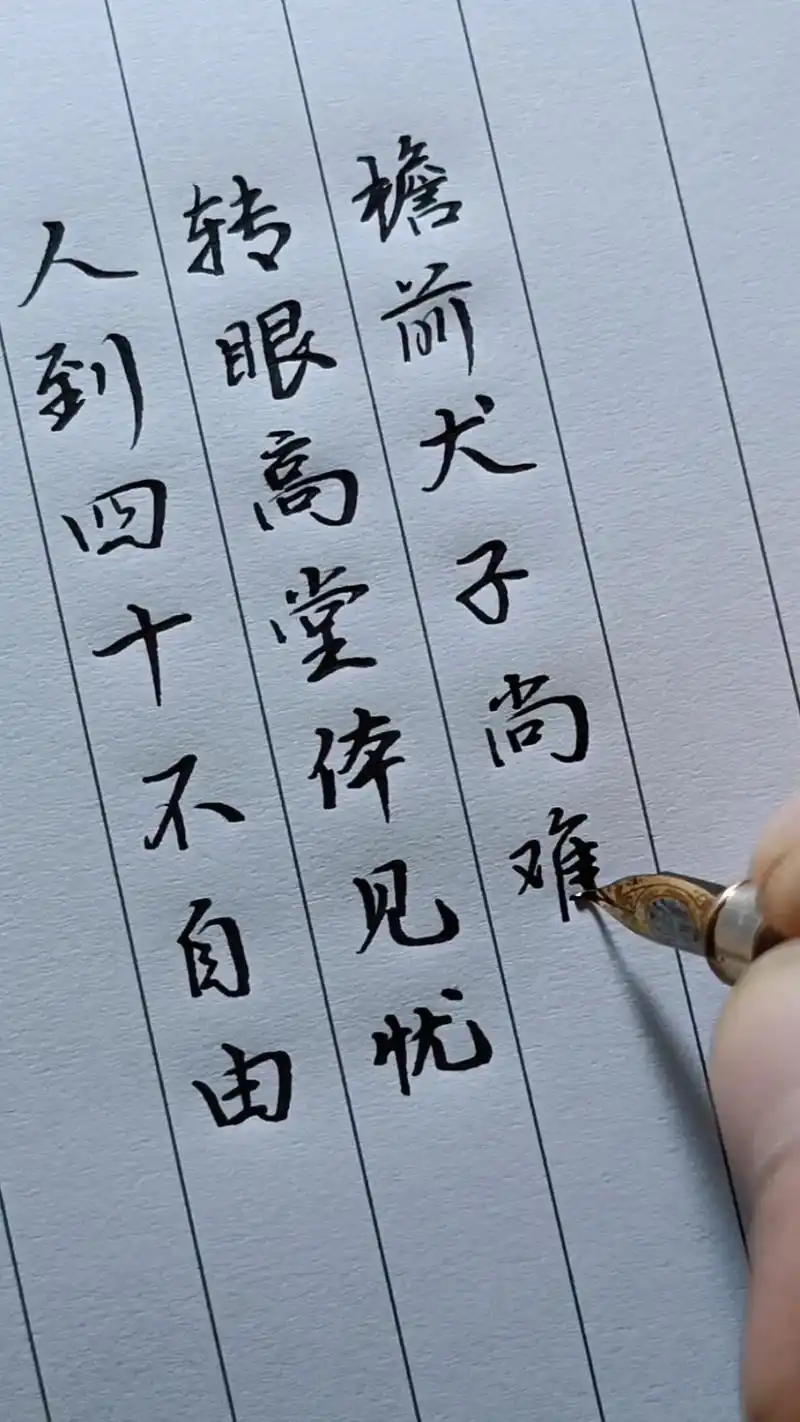 人到四十不自由
转眼高堂体见忧
檐前犬子尚难